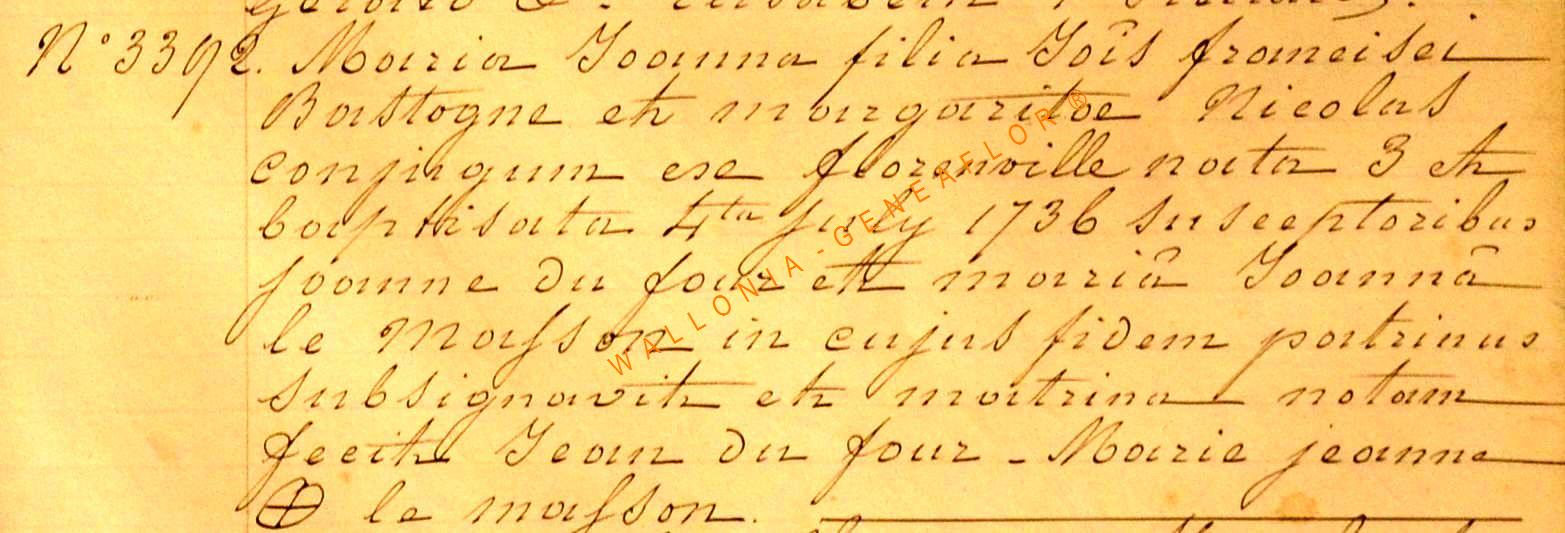 N° 3392. Maria Joanna filia Joîs francisci
Bastogne et margaritae Nicolas
conjugum ex florenville nata 3 et
baptisata 4ta july 1736 susceptoribus
joanne du four et mariâ Joannâ
le Masson in cujus fidem patrinus
subsignavit et matrina notam
fecit Jean du four - Marie jeanne
le masson.
WALLONIA - GENEAFLOR ®